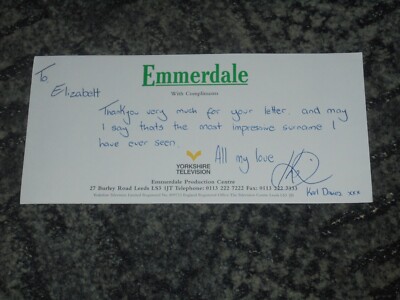 To
Elizabott
Emmerdale
With Compliments
Thankyou very much for your letter, and may
I say thats the most impressive surname I
have ever seen.
All my love
YORKSHIRE
TELEVISION
Karl Davies xxx
Emmerdale Production Centre
27 Burley Road Leeds LS3 1JT Telephone: 0113 222 7222 Fax: 0113 222 3433